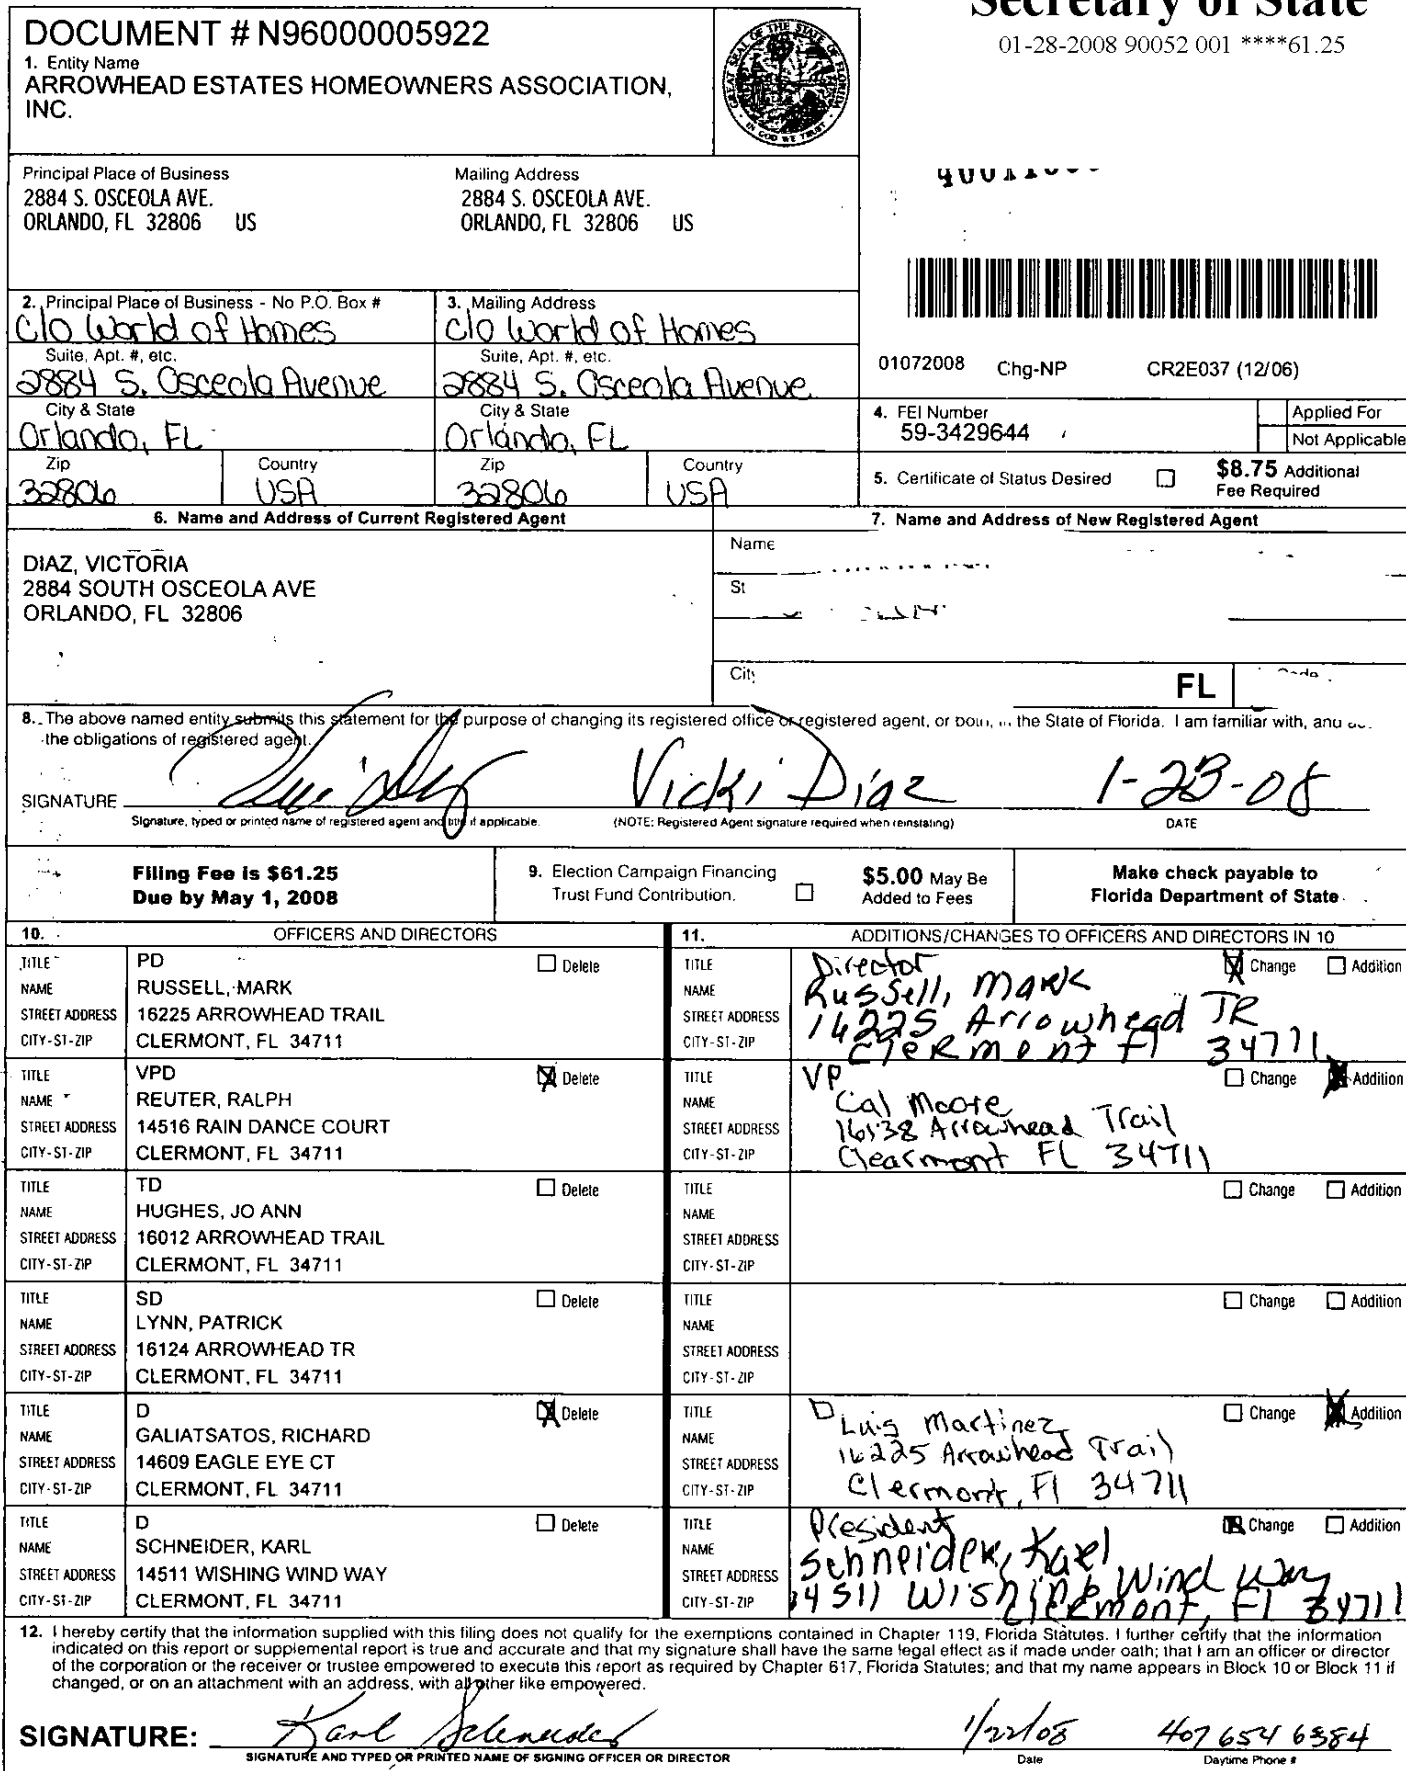 Secretary of State
01-28-2008 90052 001 ****61.25
DOCUMENT # N96000005922
1. Entity Name
ARROWHEAD ESTATES HOMEOWNERS ASSOCIATION,
INC.
GREAT SEAL OF THE STATE OF FLORIDA
IN GOD WE TRUST
Principal Place of Business
2884 S. OSCEOLA AVE.
ORLANDO, FL 32806 US
Mailing Address
2884 S. OSCEOLA AVE.
ORLANDO, FL 32806 US
2. Principal Place of Business - No P.O. Box #
C/O World of Homes
Suite, Apt. #, etc.
2884 S. Osceola Avenue
City & State
Orlando, FL
Zip
32806
Country
USA
3. Mailing Address
C/O World of Homes
Suite, Apt. #, etc.
2884 S. Osceola Avenue
City & State
Orlando, FL
Zip
32806
Country
USA
01072008 Chg-NP CR2E037 (12/06)
4. FEI Number
59-3429644
Applied For
Not Applicable
5. Certificate of Status Desired
$8.75 Additional
Fee Required
6. Name and Address of Current Registered Agent
DIAZ, VICTORIA
2884 SOUTH OSCEOLA AVE
ORLANDO, FL 32806
7. Name and Address of New Registered Agent
Name
St
City
FL
8. The above named entity submits this statement for the purpose of changing its registered office or registered agent, or both, in the State of Florida. I am familiar with, and
the obligations of registered agent.
SIGNATURE Vicki Diaz 1-23-08
Signature, typed or printed name of registered agent and title if applicable. (NOTE: Registered Agent signature required when reinstating) DATE
Filing Fee is $61.25
Due by May 1, 2008
9. Election Campaign Financing
Trust Fund Contribution.
$5.00 May Be
Added to Fees
Make check payable to
Florida Department of State
10. OFFICERS AND DIRECTORS
TITLE PD Delete
NAME RUSSELL, MARK
STREET ADDRESS 16225 ARROWHEAD TRAIL
CITY-ST-ZIP CLERMONT, FL 34711
TITLE VPD X Delete
NAME REUTER, RALPH
STREET ADDRESS 14516 RAIN DANCE COURT
CITY-ST-ZIP CLERMONT, FL 34711
TITLE TD Delete
NAME HUGHES, JO ANN
STREET ADDRESS 16012 ARROWHEAD TRAIL
CITY-ST-ZIP CLERMONT, FL 34711
TITLE SD Delete
NAME LYNN, PATRICK
STREET ADDRESS 16124 ARROWHEAD TR
CITY-ST-ZIP CLERMONT, FL 34711
TITLE D X Delete
NAME GALIATSATOS, RICHARD
STREET ADDRESS 14609 EAGLE EYE CT
CITY-ST-ZIP CLERMONT, FL 34711
TITLE D Delete
NAME SCHNEIDER, KARL
STREET ADDRESS 14511 WISHING WIND WAY
CITY-ST-ZIP CLERMONT, FL 34711
11. ADDITIONS/CHANGES TO OFFICERS AND DIRECTORS IN 10
TITLE Director X Change Addition
NAME Russell, Mark
STREET ADDRESS 16225 Arrowhead TR
CITY-ST-ZIP Clermont Fl 34711
TITLE VP Change X Addition
NAME Cal Moore
STREET ADDRESS 16138 Arrowhead Trail
CITY-ST-ZIP Clearmont FL 34711
TITLE Change Addition
NAME
STREET ADDRESS
CITY-ST-ZIP
TITLE Change Addition
NAME
STREET ADDRESS
CITY-ST-ZIP
TITLE D Change X Addition
NAME Luis Martinez
STREET ADDRESS 16225 Arrowhead Trail
CITY-ST-ZIP Clermont, Fl 34711
TITLE President X Change Addition
NAME Schneider, Karl
STREET ADDRESS 14511 Wishing Wind Way
CITY-ST-ZIP Clermont, Fl 34711
12. I hereby certify that the information supplied with this filing does not qualify for the exemptions contained in Chapter 119, Florida Statutes. I further certify that the information
indicated on this report or supplemental report is true and accurate and that my signature shall have the same legal effect as if made under oath; that I am an officer or director
of the corporation or the receiver or trustee empowered to execute this report as required by Chapter 617, Florida Statutes; and that my name appears in Block 10 or Block 11 if
changed, or on an attachment with an address, with all other like empowered.
SIGNATURE: Karl Schneider 1/22/08 407 654 6384
SIGNATURE AND TYPED OR PRINTED NAME OF SIGNING OFFICER OR DIRECTOR Date Daytime Phone #